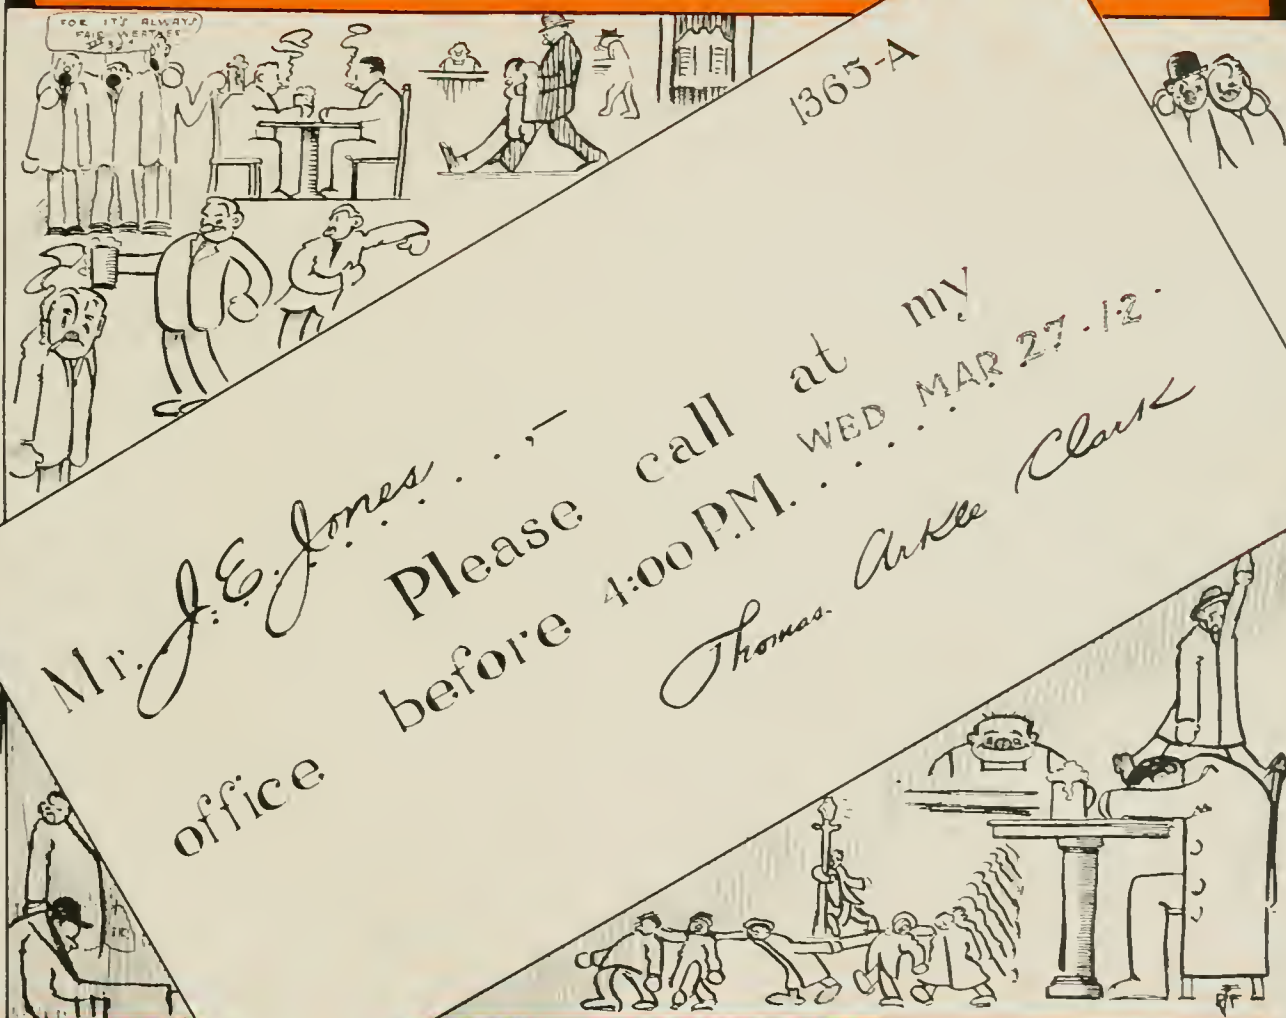 FOR IT'S ALWAYS
FAIR WEATHER
1365-A
Mr. J. E. Jones . . . ,—
Please call at my
office before 4:00 P.M. WED MAR 27 · 12 ·
Thomas Arkle Clark